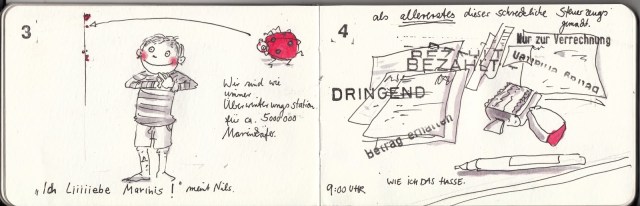 3
Wir sind wie
immer
Überwinterungsstation
für ca. 5000000
Marienkäfer.
„Ich Liiiiiebe Marihis!" meint Nils.
als allererstes dieser schreckliche Steuerzeugs
gemacht.
4
BEZAHLT
BEZAHLT
Nur zur Verrechnung
DRINGEND
betrag erhalten
betrag erhalten
9:00 UHR
WIE ICH DAS HASSE.